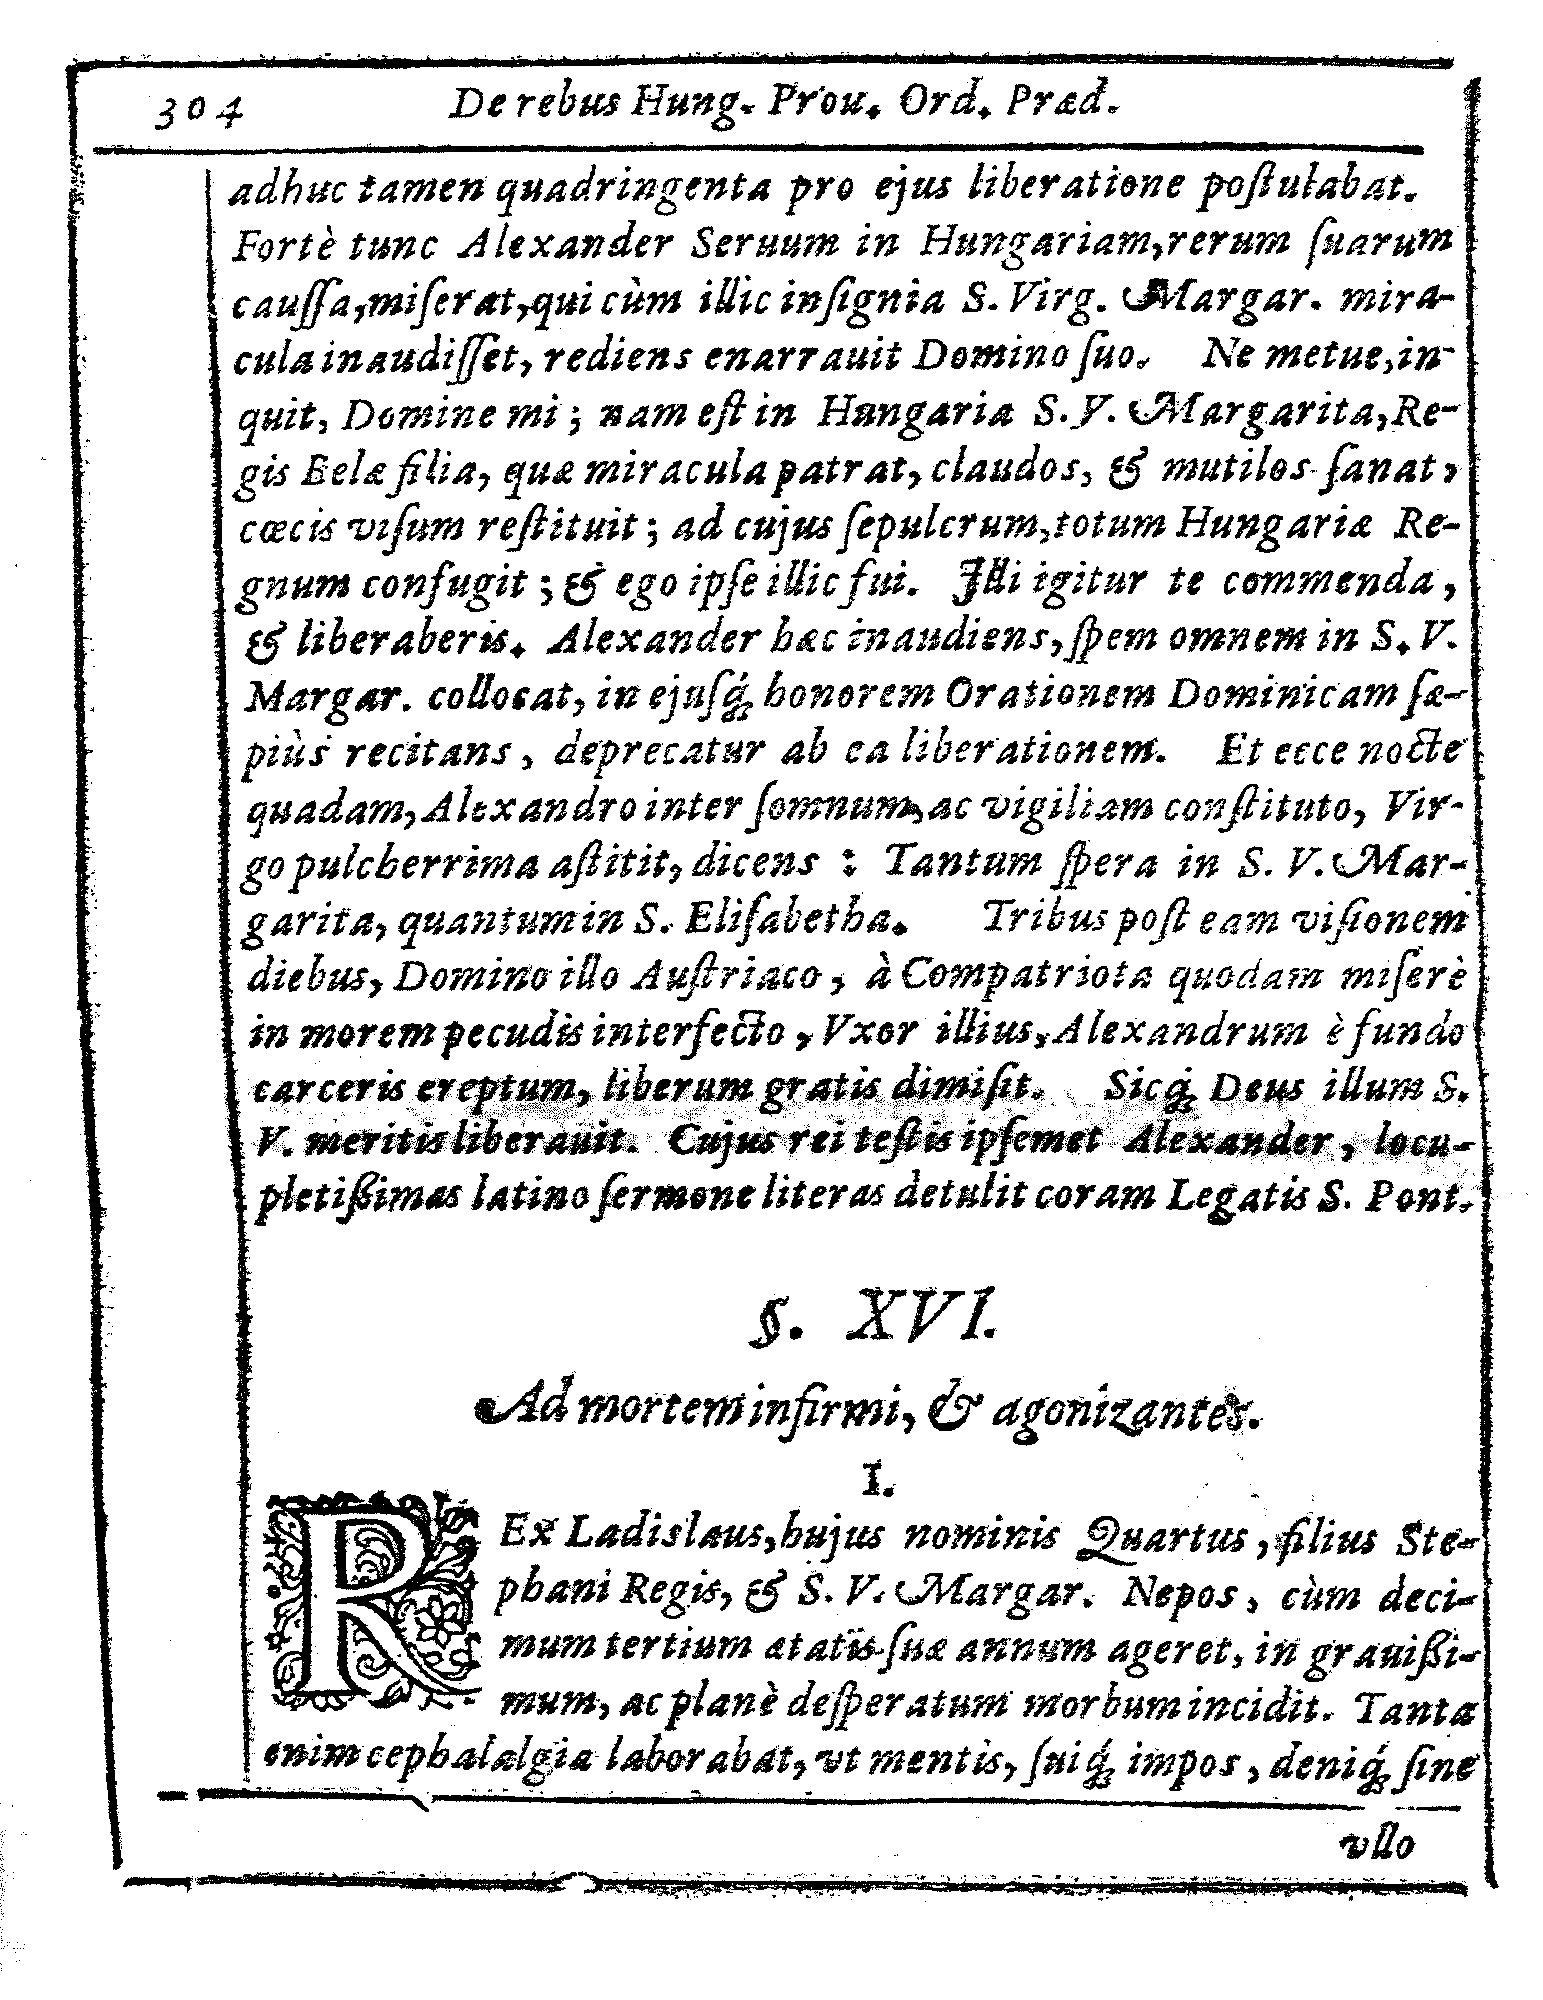 304 De rebus Hung. Prou. Ord. Præd.
adhuc tamen quadringenta pro ejus liberatione poſtulabat.
Fortè tunc Alexander Seruum in Hungariam, rerum ſuarum
cauſſa, miſerat, qui cùm illic inſignia S. Virg. Margar. mira-
cula inaudiſſet, rediens enarrauit Domino ſuo. Ne metue, in-
quit, Domine mi; nam eſt in Hungaria S. V. Margarita, Re-
gis Belæ filia, quæ miracula patrat, claudos, & mutilos ſanat,
cœcis viſum reſtituit; ad cujus ſepulcrum, totum Hungariæ Re-
gnum confugit; & ego ipſe illic fui. Illi igitur te commenda,
& liberaberis. Alexander hæc inaudiens, ſpem omnem in S. V.
Margar. collocat, in ejuſq́; honorem Orationem Dominicam ſæ-
piùs recitans, deprecatur ab ea liberationem. Et ecce nocte
quadam, Alexandro inter ſomnum, ac vigiliam conſtituto, Vir-
go pulcherrima aſtitit, dicens : Tantum ſpera in S. V. Mar-
garita, quantum in S. Eliſabetha. Tribus poſt eam viſionem
diebus, Domino illo Auſtriaco, à Compatriota quodam miſerè
in morem pecudis interfecto, Vxor illius, Alexandrum è fundo
carceris ereptum, liberum gratis dimiſit. Sicq́; Deus illum S.
V. meritis liberauit. Cujus rei teſtis ipſemet Alexander, locu-
pletißimas latino ſermone literas detulit coram Legatis S. Pont.
§. XVI.
Ad mortem infirmi, & agonizantes.
I.
REx Ladislaus, hujus nominis Quartus, filius Ste-
phani Regis, & S. V. Margar. Nepos, cùm deci-
mum tertium ætatis ſuæ annum ageret, in grauißi-
mum, ac planè deſperatum morbum incidit. Tanta
enim cephalalgia laborabat, vt mentis, ſuiq́; impos, deniq́; ſine
vllo